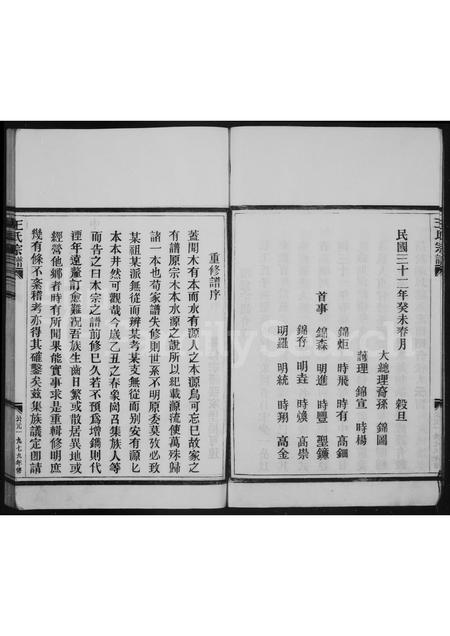 王氏宗譜
民國三十二年癸未春月 穀旦
大總理裔孫 錦圖
協理 錦宣 時楊
錦炬 時飛 時有 高鈿
首事 錦森 明進 時豐 聖鐮
錦杏 明垚 時煥 高崇
明羅 明統 時朔 高金
重修譜序
蓋聞木有本而水有源人之本源烏可忘已故家之
有譜原宗木本水源之說所以紀載源流使萬殊歸
諸一本也苟家譜失修則世系不明原委莫攷必致
某祖某派無從而辨某考某支無從而別安有源七
本本井然可觀哉今歲乙丑之春象岡召集族人等
而告之曰本宗之譜前修已久若不預為增鐫則代
湮年遠釐訂愈難況吾族生齒日繁或散居異地或
經營他鄉者時有所聞果能實事求是重輯修明庶
幾有條不紊稽考亦得其確鑿矣茲集族議定卽請
王氏宗譜
公元一九七九年修